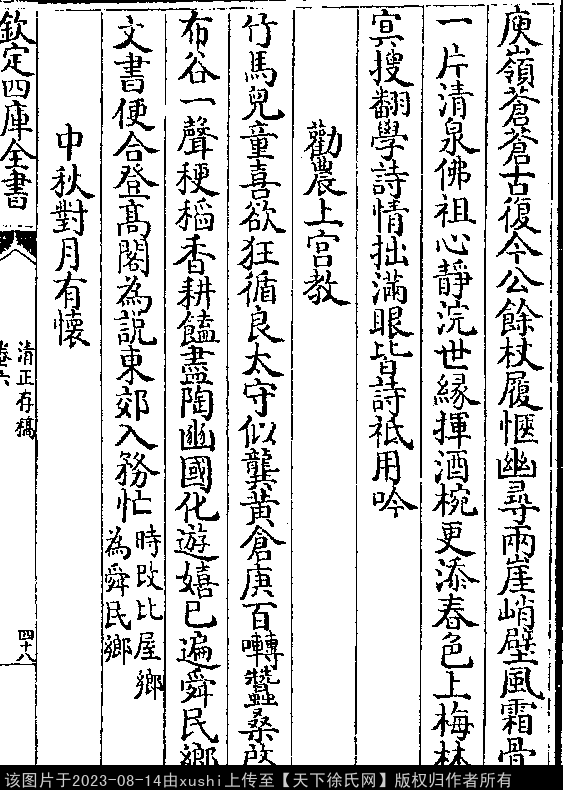 庾嶺蒼蒼古復今公餘杖履愜幽尋兩崖峭壁風霜骨
一片清泉佛祖心靜浣世緣揮酒椀更添春色上梅林
㝠搜翻學詩情拙滿眼皆詩祗用吟
勸農上宫教
竹馬兒童喜欲狂循良太守似龔黄倉庚百囀蠶桑啟
布谷一聲稉稻香耕饁盡陶豳國化遊嬉已遍舜民鄉
文書便合登髙閣為説東郊入務忙時改比屋鄉為舜民鄉
中秋對月有懷
欽定四庫全書
清正存稿
卷六
四十八
该图片于2023-08-14由xushi上传至【天下徐氏网】版权归作者所有